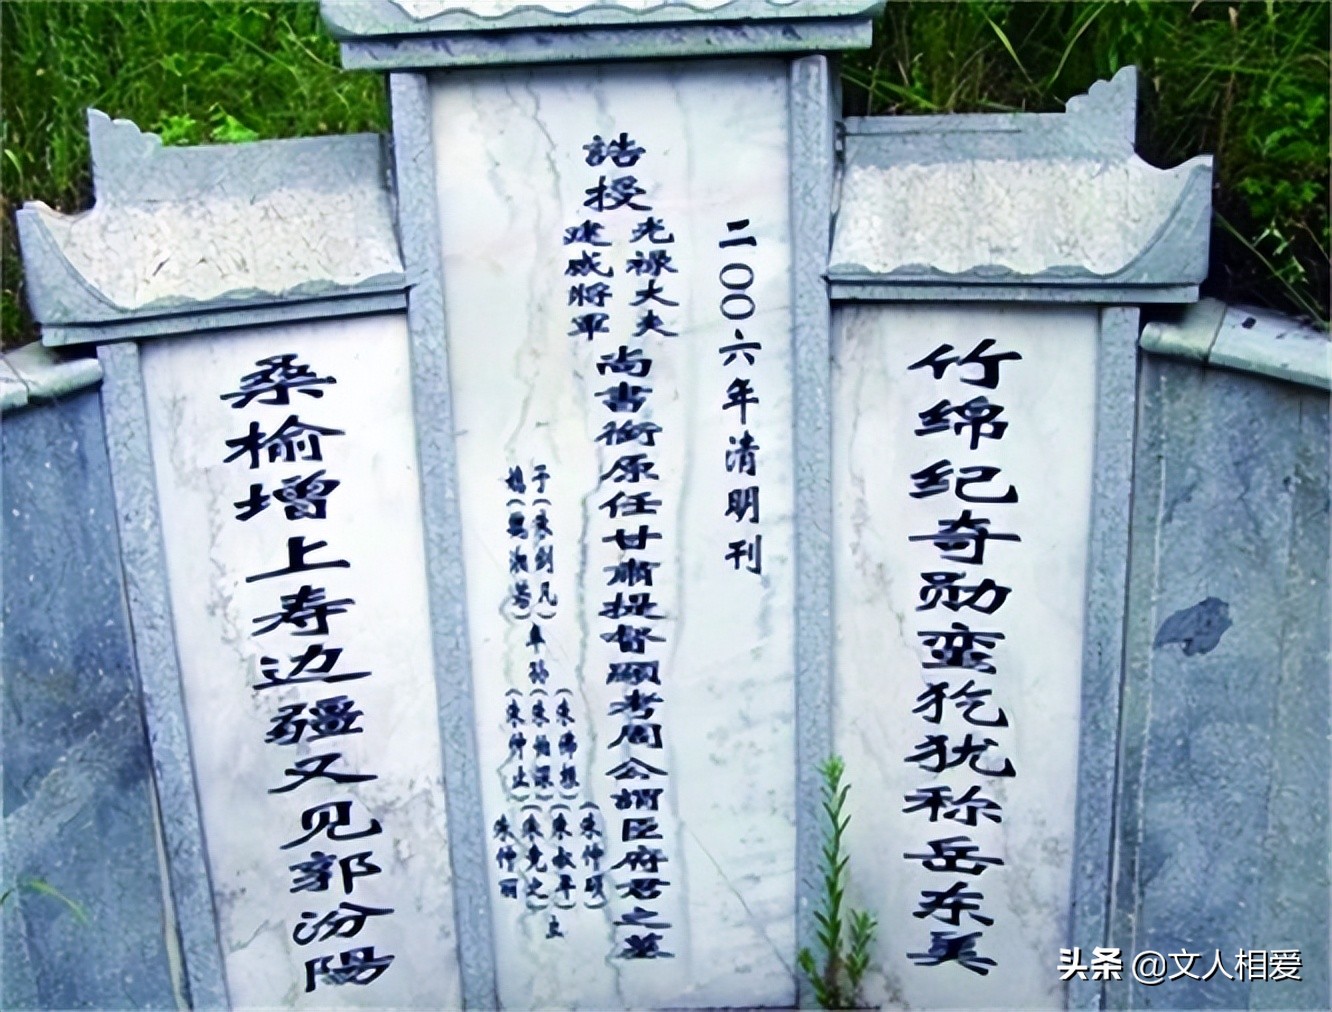 竹绵纪奇勋蛮犵犹称岳东美
二〇〇六年清明刊
诰授
光禄大夫
建威將軍
尚書衔原任甘肅提督顕考周公謂臣府君之墓
于(朱剑凡)
媳(
年孙
(朱沸想)
(朱伯深)
(朱仲止)
(朱仲硕)
(朱叔平)
(朱克之)
朱仲丽
立
桑榆增上寿边疆又见郭汾陽
头条 @文人相爱